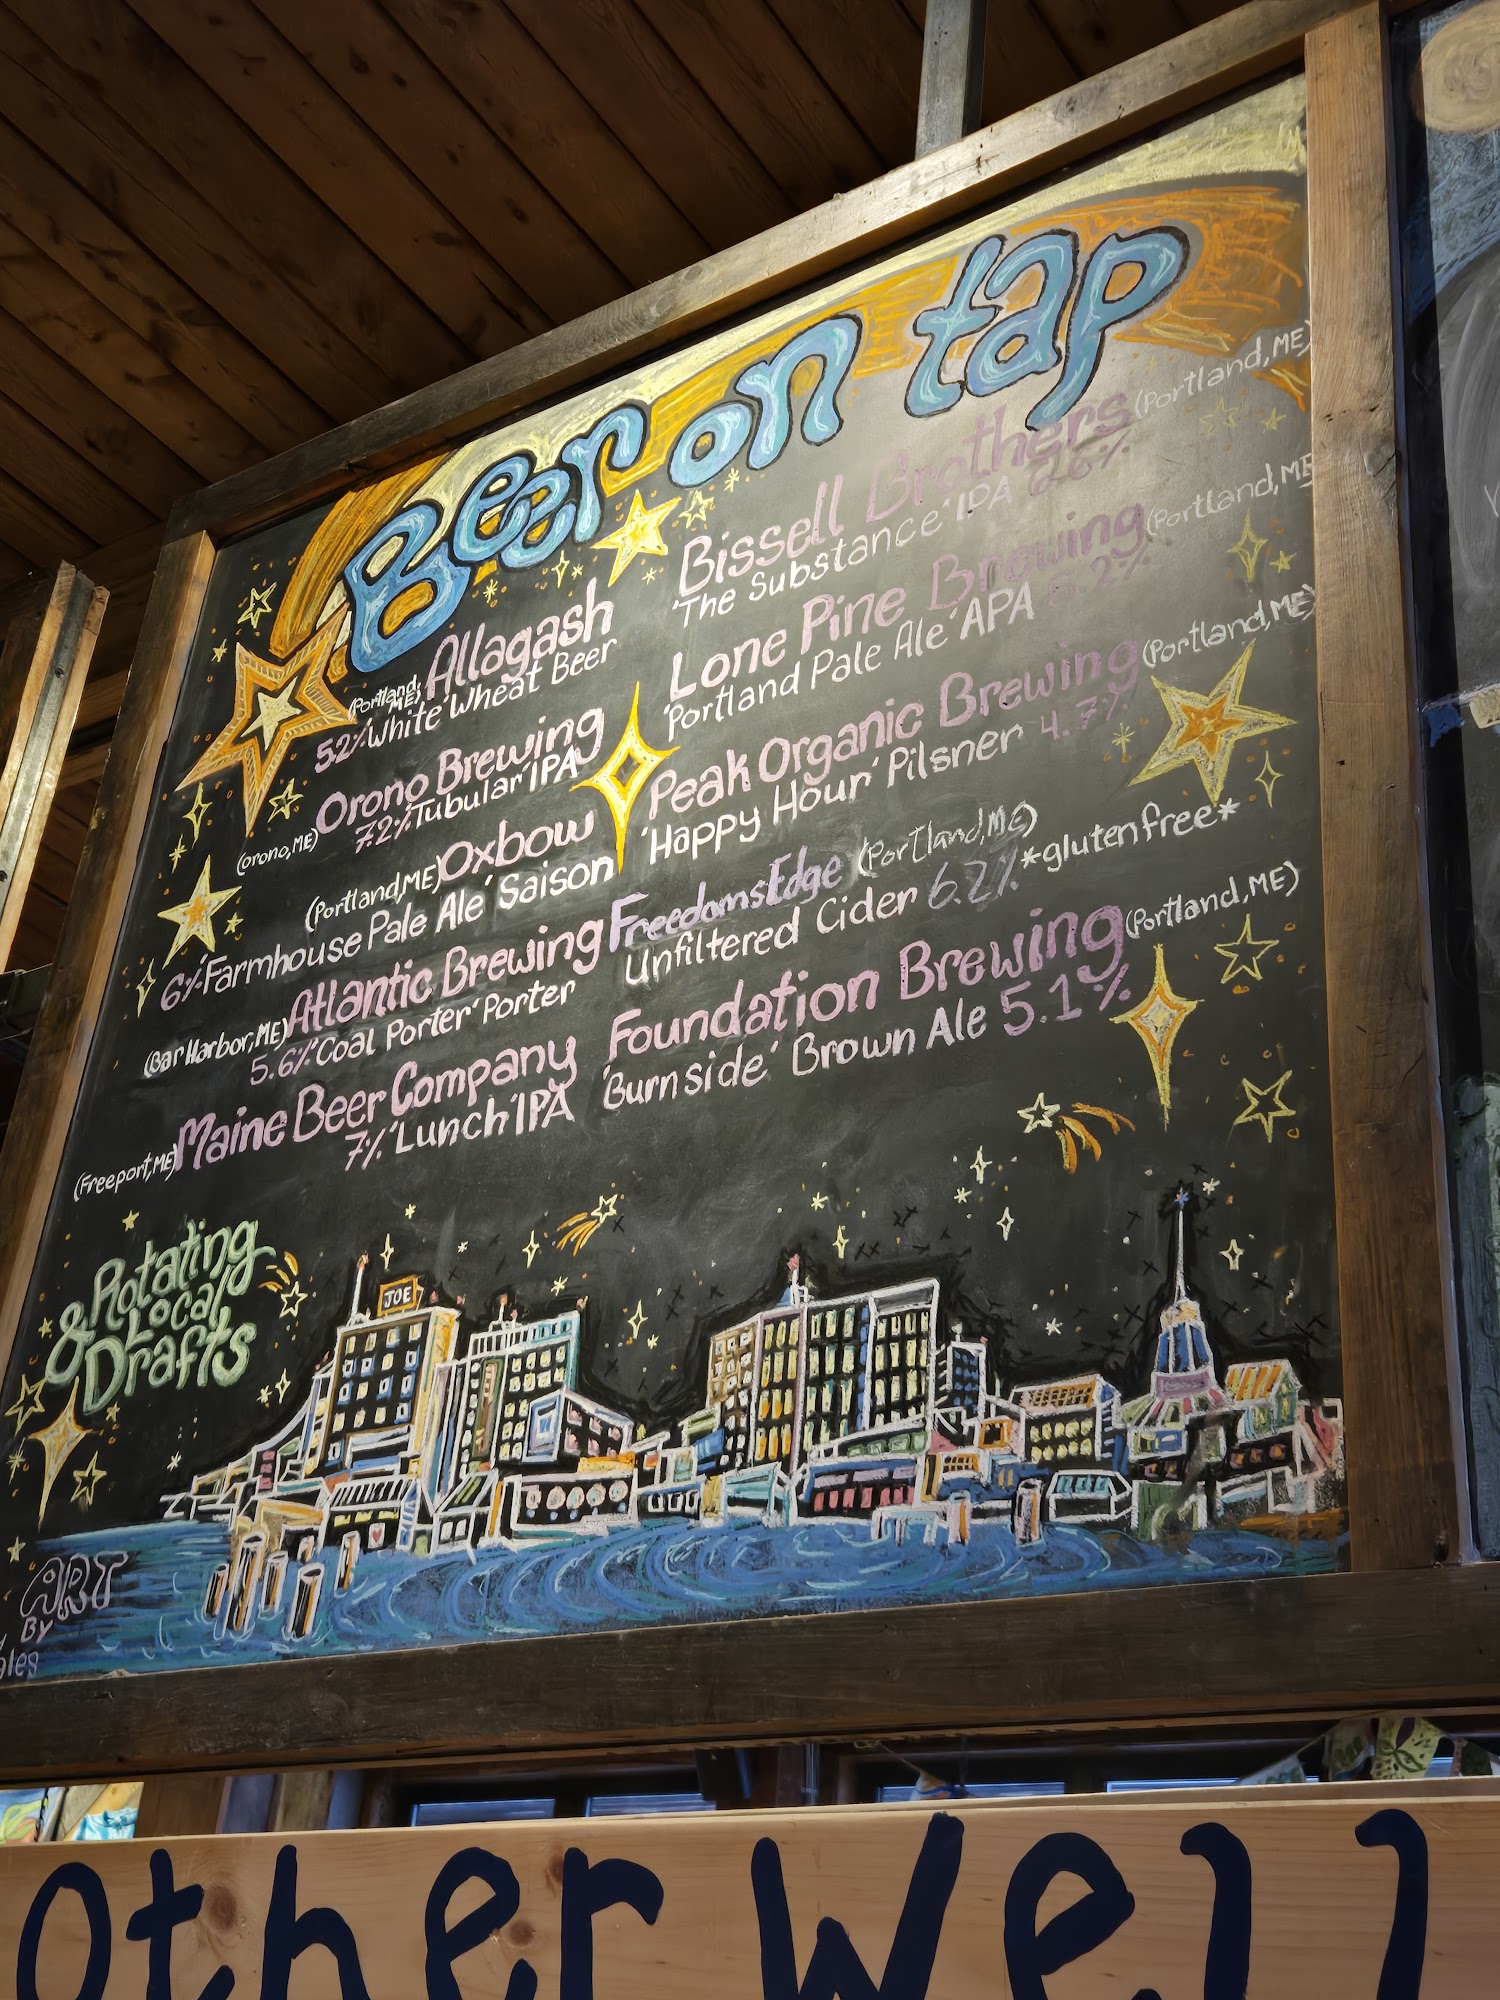 Beer on tap
(Portland, ME) Allagash
5.2% 'White' Wheat Beer
(Orono, ME) Orono Brewing
7.2% 'Tubular' IPA
(Portland, ME) Oxbow
6% 'Farmhouse Pale Ale' Saison
(Bar Harbor, ME) Atlantic Brewing
5.6% 'Coal Porter' Porter
(Freeport, ME) Maine Beer Company
7% 'Lunch' IPA
Bissell Brothers (Portland, ME)
'The Substance' IPA
Lone Pine Brewing (Portland, ME)
'Portland Pale Ale' APA 5.2%
Peak Organic Brewing (Portland, ME)
'Happy Hour' Pilsner 4.7%
Freedoms Edge (Portland, ME)
Unfiltered Cider 6.2% *gluten free*
Foundation Brewing (Portland, ME)
'Burnside' Brown Ale 5.1%
& Rotating
Local
Drafts
JOE
ART
By
other well